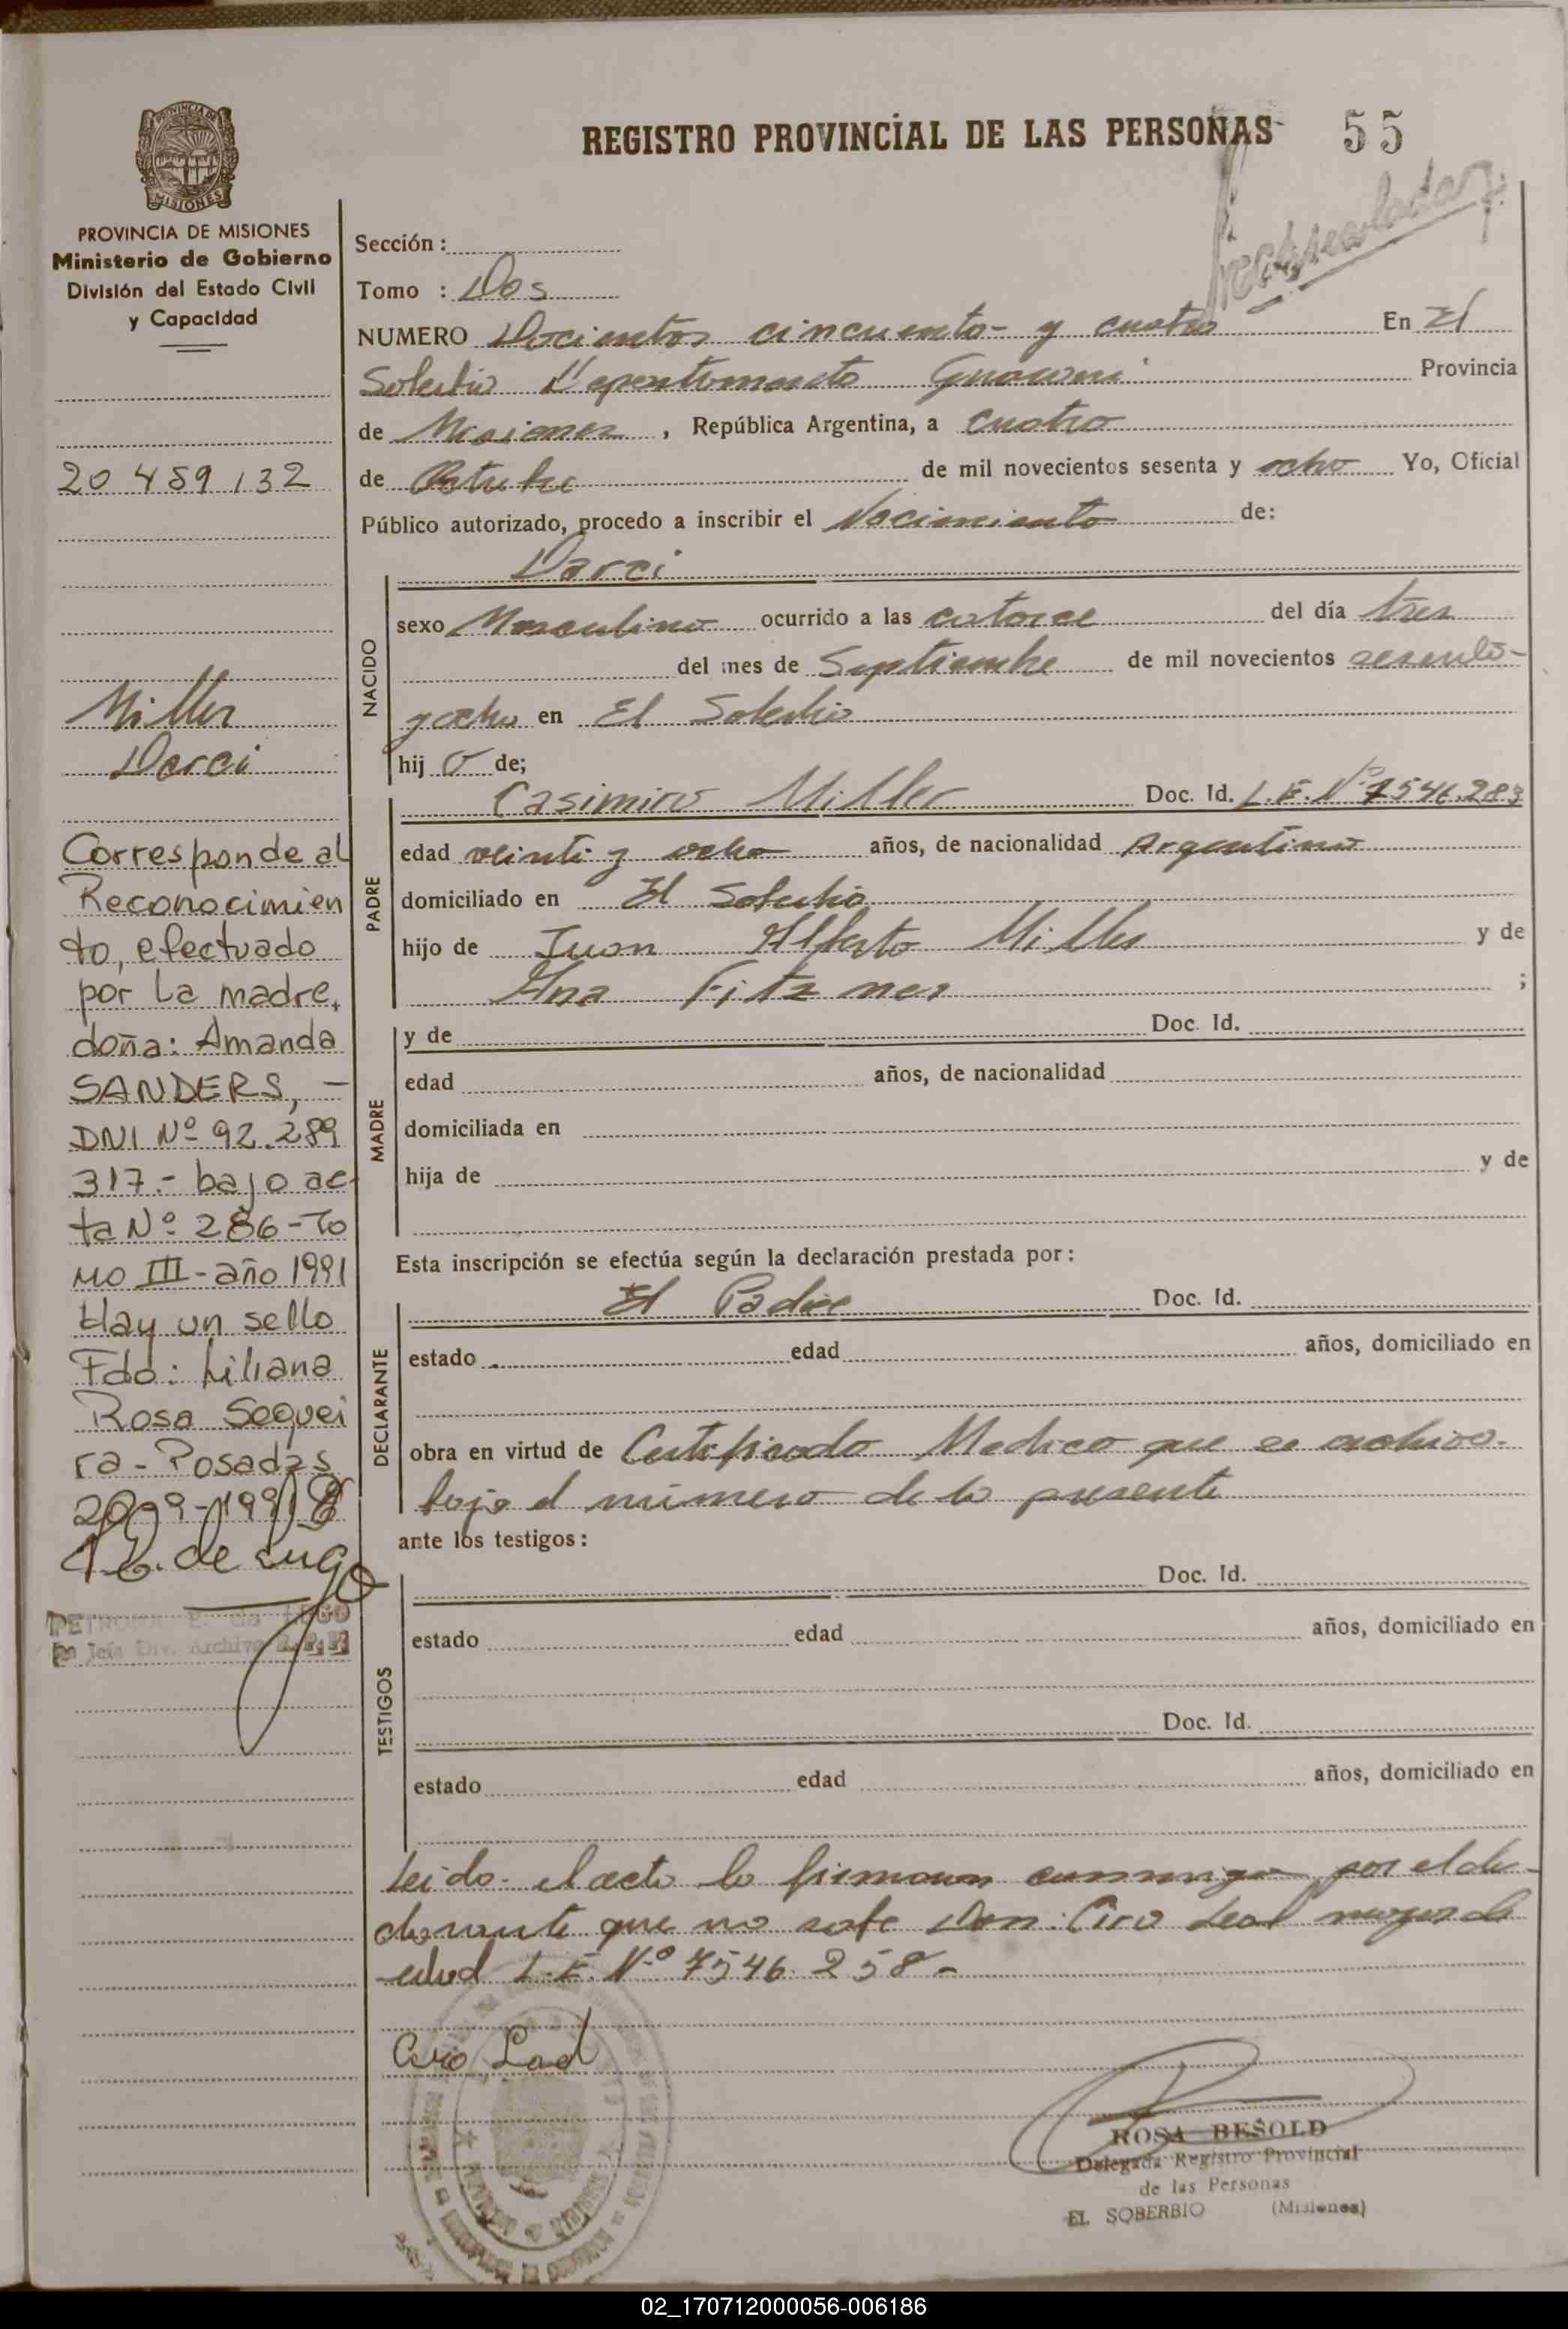 REGISTRO PROVINCIAL DE LAS PERSONAS
55
PROVINCIA DE
MISIONES
PROVINCIA DE MISIONES
Ministerio de Gobierno
División del Estado Civil
y Capacidad
20 459 132
Miller
Darci
Corresponde al
Reconocimien
to, efectuado
por La madre,
doña: Amanda
SANDERS, -
DNI Nº 92.289
317.- bajo ac-
ta Nº 286-To
mo III-año 1991
Hay un sello
Fdo: Liliana
Rosa Sequei
ra-Posadas
PETRONA E. de LUGO
Jefa Div. Archivo R.P.P.
Sección:
Tomo : Dos
NUMERO Docientos cincuenta- y cuatro En El
Soberbio Departamento Guarani Provincia
de Misiones, República Argentina, a cuatro
de Octubre de mil novecientos sesenta y ocho Yo, Oficial
Público autorizado, procedo a inscribir el Nacimiento de:
Darci
NACIDO
sexo Masculino ocurrido a las catorce del día tres
del mes de Septiembre de mil novecientos sesenta-
y ocho en El Soberbio
hij o de;
PADRE
Casimiro Miller Doc. Id. L.E. Nº 7546.283
edad veinti y ocho años, de nacionalidad Argentina
domiciliado en El Soberbio
hijo de Juan Alberto Miller y de
Ana Fitz ner ;
MADRE
y de Doc. Id.
edad años, de nacionalidad
domiciliada en
hija de y de
Esta inscripción se efectúa según la declaración prestada por:
DECLARANTE
El Padre Doc. Id.
estado edad años, domiciliado en
obra en virtud de Certificado Medico que se archiva-
bajo el numero de la presente
ante los testigos:
TESTIGOS
Doc. Id.
estado edad años, domiciliado en
Doc. Id.
estado edad años, domiciliado en
Leido- el acta la firman conmigo por el de-
clarante que no sabe Don: Ciro Leal mayor de
edad L.E. Nº 7546.258-
Ciro Leal
ROSA BESOLD
Delegada Registro Provincial
de las Personas
EL SOBERBIO (Misiones)
02_170712000056-006186